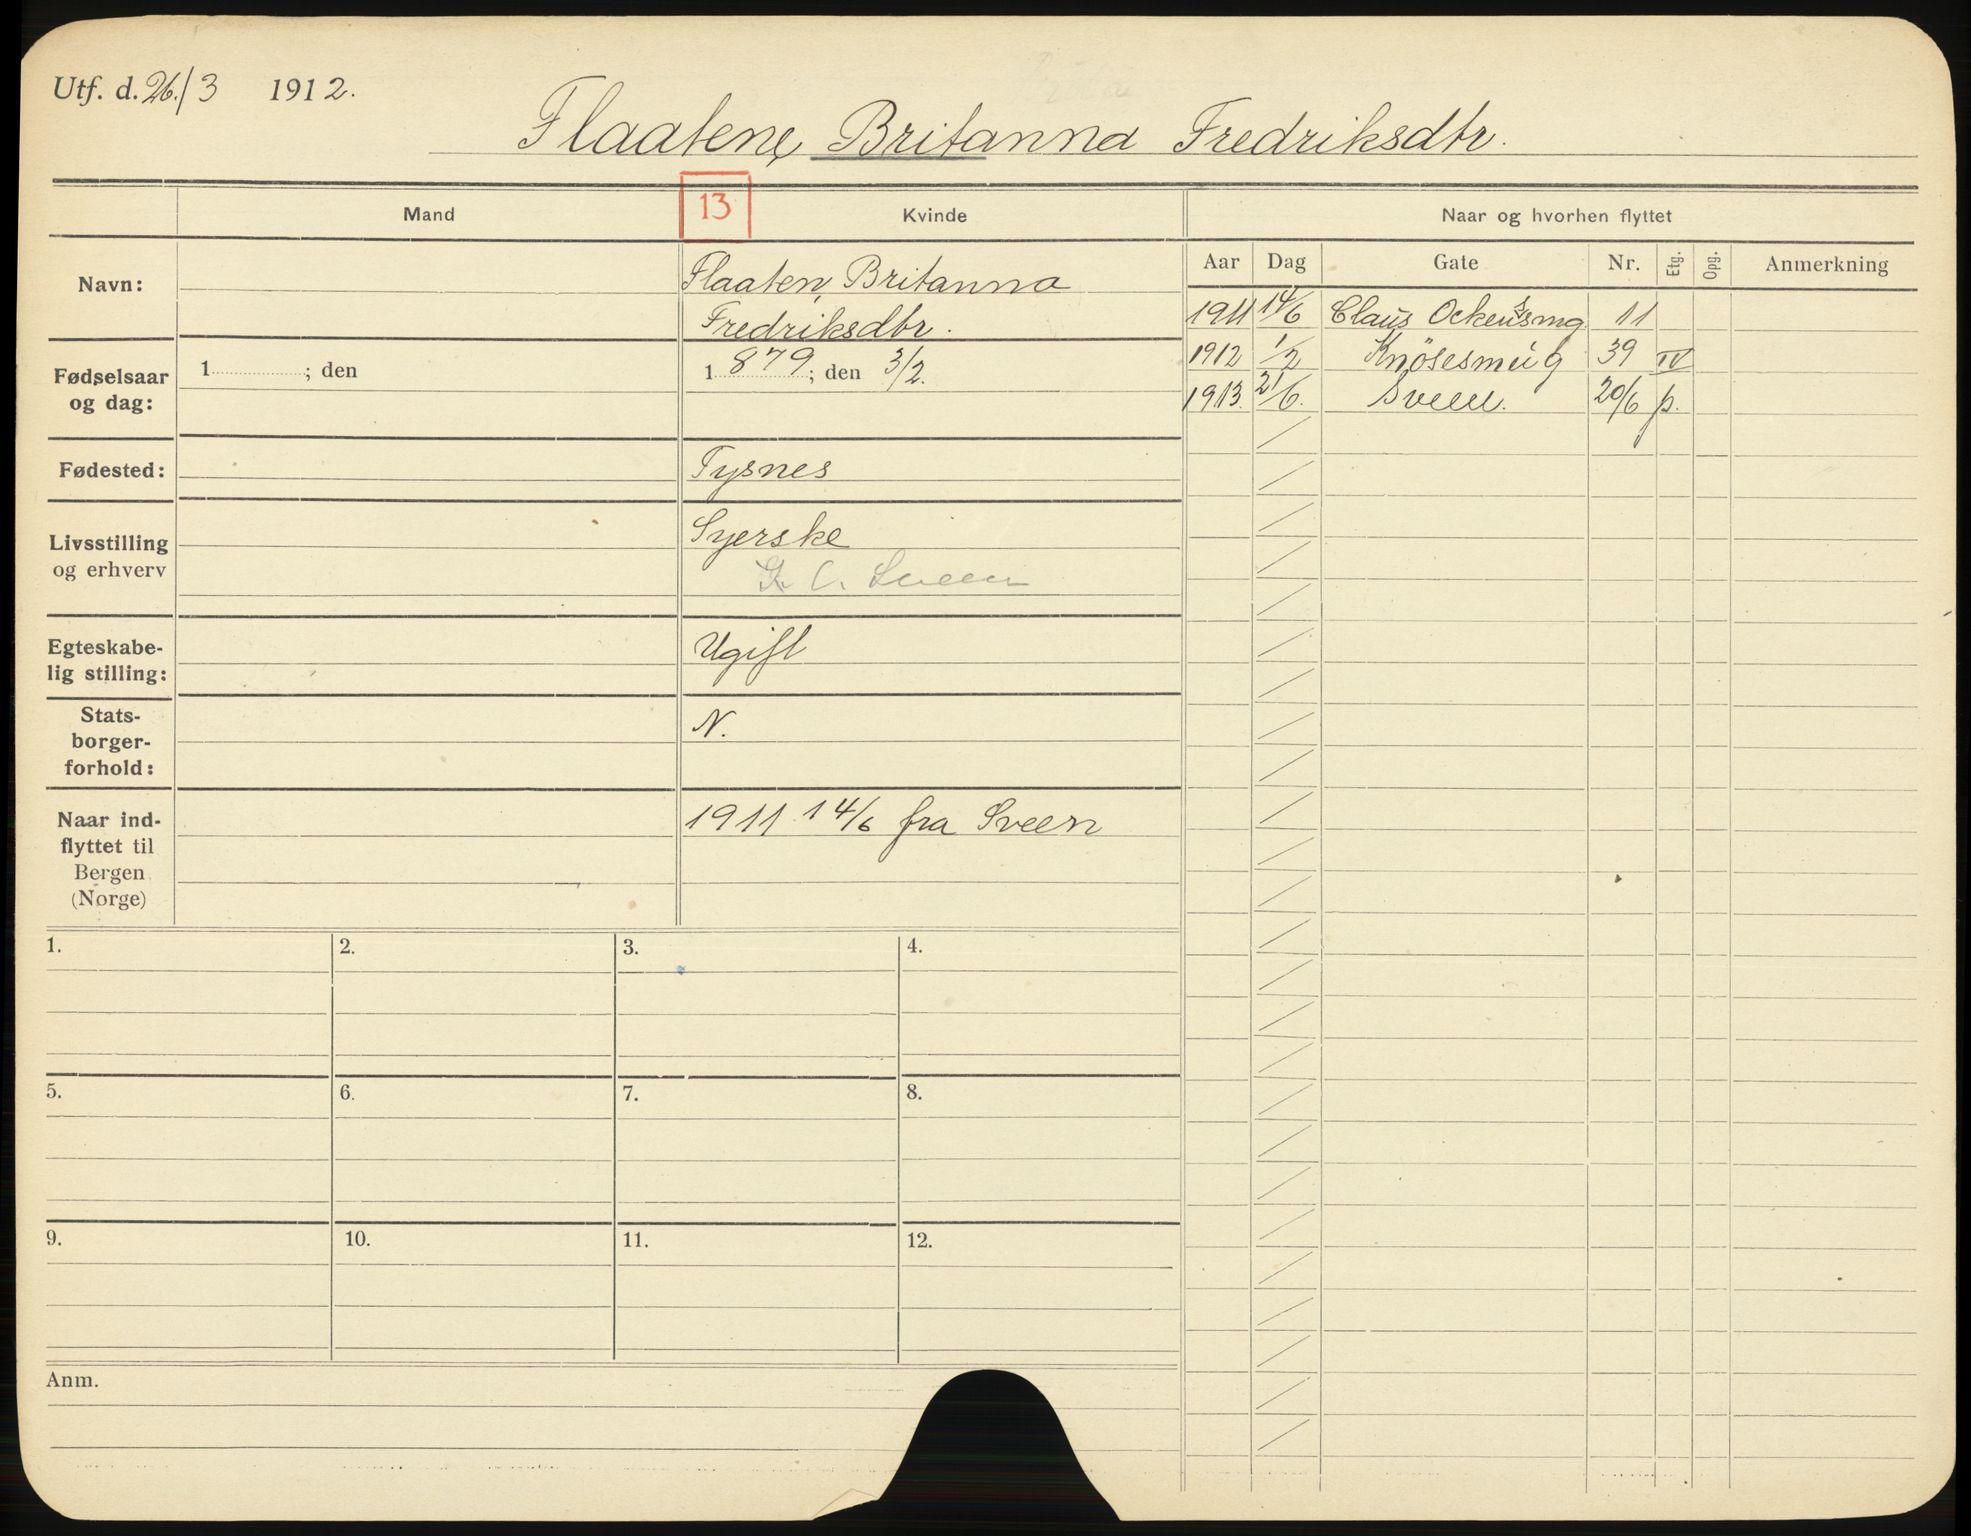 Utf. d. 26./3 1912.
Flaaten, Britanna Fredriksdtr.
Mand
13
Kvinde
Naar og hvorhen flyttet
Aar Dag Gate Nr. Etg. Opg. Anmerkning
Navn:
Flaaten, Britanna
Fredriksdtr.
1911 14/6 Claus Ockensmg 11
1912 1/2 Knösesmug 39 IV
1913. 21/6. Sveen. 20/6 p.
Fødselsaar
og dag:
1 ; den
1 879; den 3/2.
Fødested:
Tysnes
Livsstilling
og erhverv
Syerske
Sveen
Egteskabe-
lig stilling:
Ugift
Stats-
borger-
forhold:
N.
Naar ind-
flyttet til
Bergen
(Norge)
1911 14/6 fra Sveen
1. 2. 3. 4.
5. 6. 7. 8.
9. 10. 11. 12.
Anm.